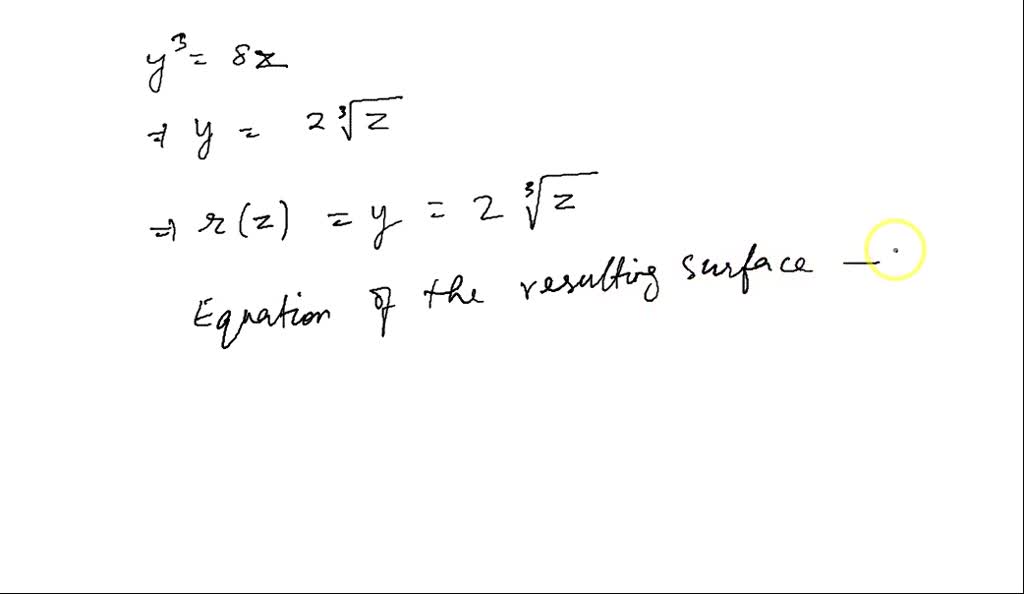 y³ = 8z
⇒ y = 2 ∛z
⇒ r(z) = y = 2 ∛z
Equation of the resulting surface —